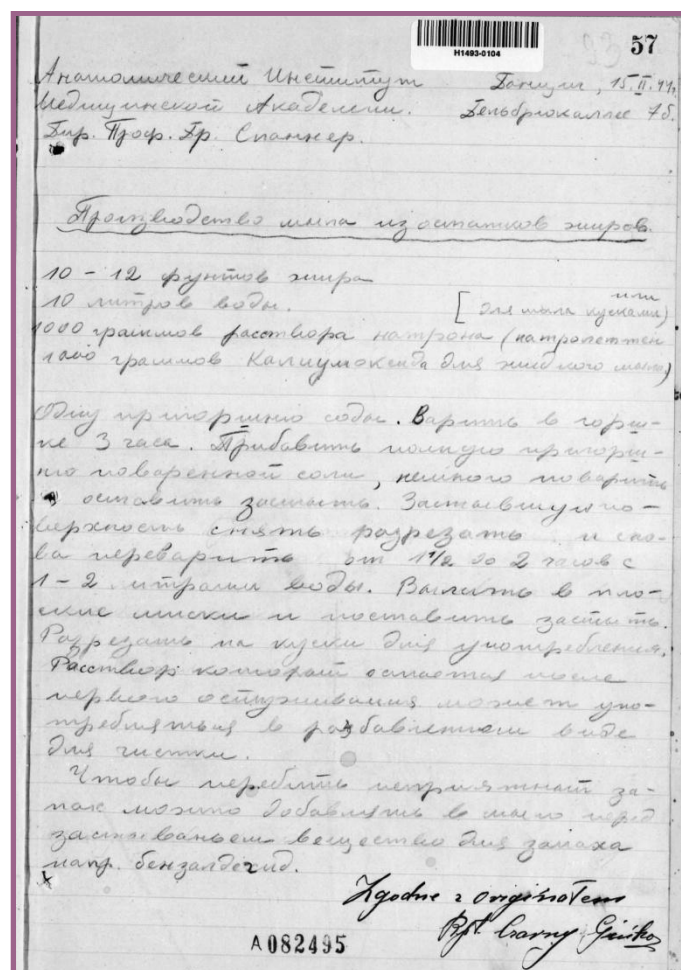 H1493-0104
93 57
Анатомический Институт Данциг, 15.II.44.
Медицинской Академии. Дельбрюкаллее 7б.
Дир. Проф. Др. Спаннер.
Производство мыла из остатков жиров.
10 – 12 фунтов жира
10 литров воды. или
[для мыла кусками)
1000 граммов расствора натрона (натролеттен
1000 граммов Калиумоксида для жидкого мыла)
Одну пригоршню соды. Варить в горш-
ке 3 часа. Прибавить полную пригорш-
ню поваренной соли, немного поварить
и оставить застыть. Застывшую по-
верхность снять разрезать и сно-
ва переварить от 1 1/2 до 2 часов с
1 – 2 литрами воды. Вылить в пло-
ские миски и поставить застыть.
Разрезать на куски для употребления.
Расствор который остается после
первого остуживания может упо-
требляться в разбавленном виде
для чистки.
Чтобы перебить неприятный за-
пах можно добавлять в мыло перед
застываньем вещество для запаха
напр. бензалдехид.
Zgodne z oryginałem
A082495